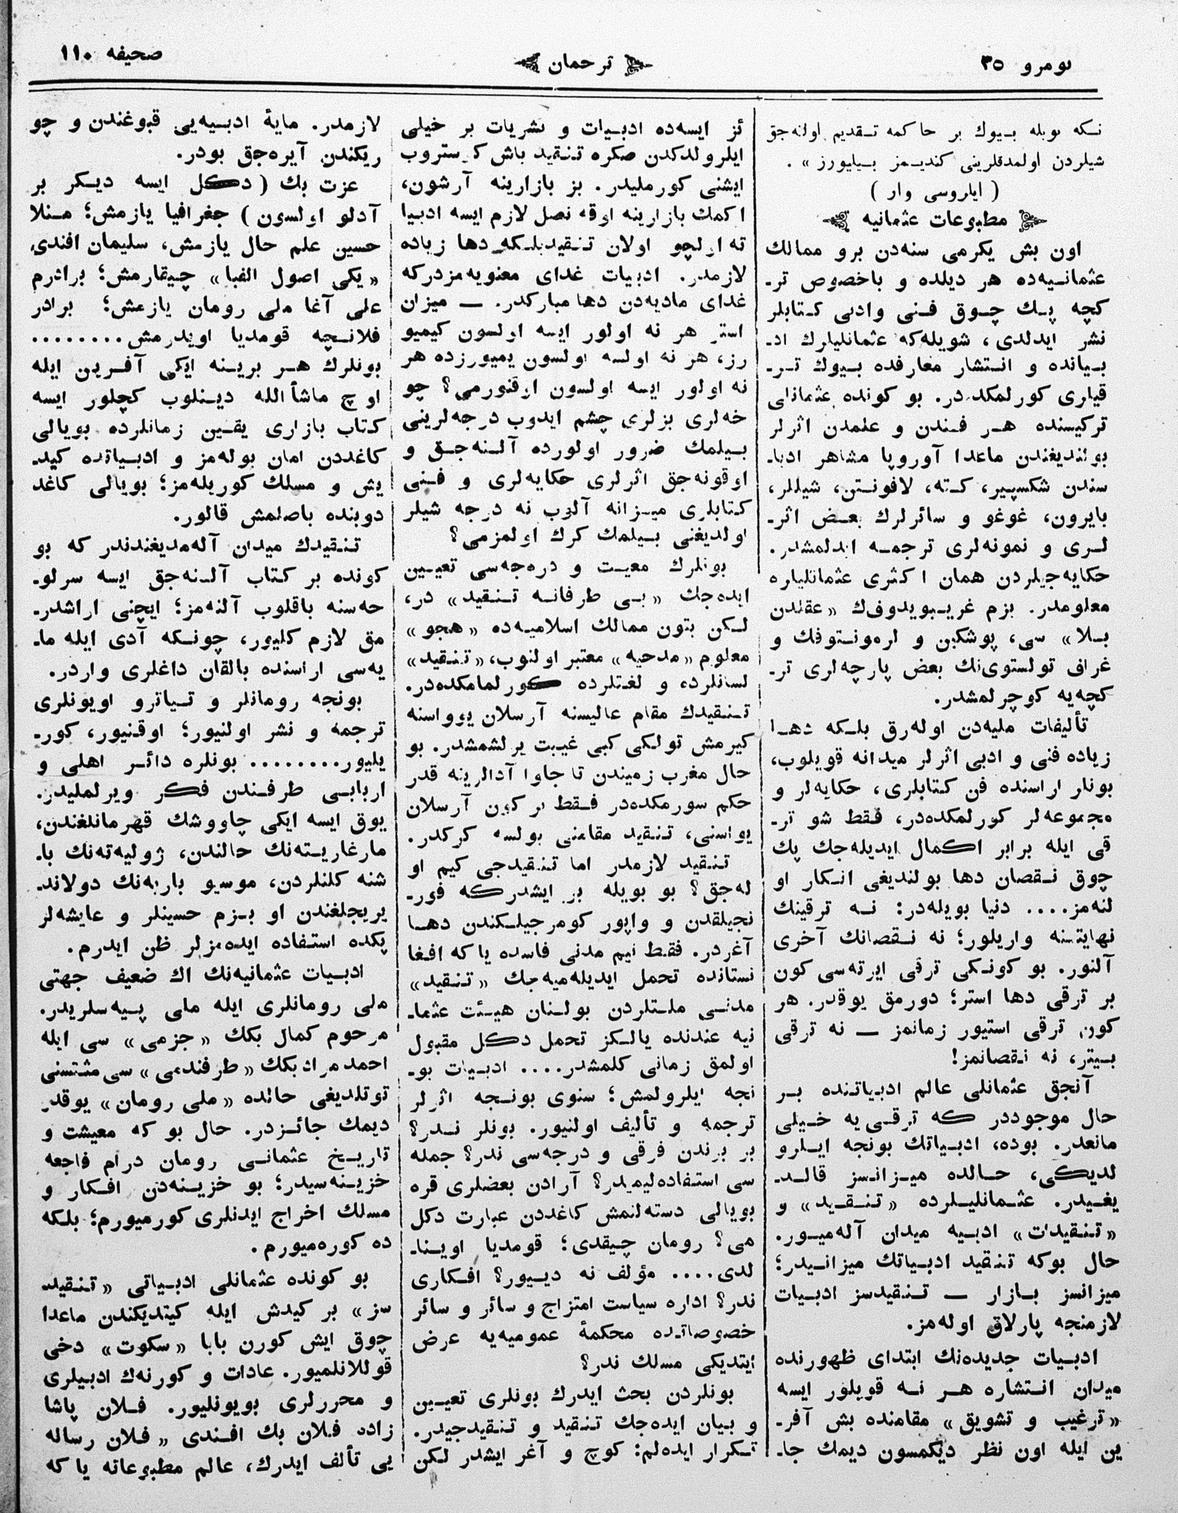 نومرو ٣٥
ترجمان
صحيفه ١١٠
نكه بويله بيوك بر حاكمه تقديم اولنه‌جق
شيلردن اولمدقلرينى كنديمز بيليورز » .
( ايلروسى وار )
مطبوعات عثمانيه
اون بش يكرمى سنه‌دن برو ممالك
عثمانيه‌ده هر ديلده و باخصوص تر-
كچه پك چوق فنى وادبى كتابلر
نشر ايدلدى، شويله‌كه عثمانليلرك اد-
بياتده و انتشار معارفده بيوك تر-
قيلرى كورلمكده‌در. بو كونده عثمانلى
تركيسنده هر فندن و علمدن اثرلر
بولنديغندن ماعدا آوروپا مشاهر ادبا-
سندن شكسپير، كته، لافونتن، شيللر،
بايرون، غوغو و سائرلرك بعض اثر-
لرى و نمونه‌لرى ترجمه ايدلمشدر.
حكايه‌جيلردن همان اكثرى عثمانليلره
معلومدر. بزم غريبويدوف‌ك «عقلدن
بلا» سى، پوشكين و لرمونتوفك و
غراف تولستوى‌نك بعض پارچه‌لرى تر-
كچه‌يه كوچرلمشدر.
تأليفات مليه‌دن اوله‌رق بلكه دها
زياده فنى و ادبى اثرلر ميدانه قويلوب،
بونلر اراسنده فن كتابلرى، حكايه‌لر و
مجموعه‌لر كورلمكده‌در، فقط شو تر-
قى ايله برابر اكمال ايديله‌جك پك
چوق نقصان دها بولنديغى انكار او
لنه‌مز.... دنيا بويله‌در: نه ترقينك
نهايتنه واريلور؛ نه نقصانك آخرى
آلنور. بو كونكى ترقى ايرته‌سى كون
بر ترقى دها استر؛ دورمق يوقدر. هر
كون ترقى استيور زمانمز — نه ترقى
بيتر، نه نقصانمز!
آنجق عثمانلى عالم ادبياتنده بر
حال موجوددر كه ترقى‌يه خيلى
مانعدر. بوده، ادبياتك بونجه ايلرو
لديكى، حالده ميزانسز قالد-
يغيدر. عثمانليلرده «تنقيد» و
«تنقيدات» ادبيه ميدان آله‌ميور.
حال بوكه تنقيد ادبياتك ميزانيدر؛
ميزانسز بازار — تنقيدسز ادبيات
لازمنجه پارلاق اوله‌مز.
ادبيات جديده‌نك ابتداى ظهورنده
ميدان انتشاره هر نه قويلور ايسه
«ترغيب و تشويق» مقامنده بش آفر-
ين ايله اون نظر ديكمسون ديمك جا-
ئز ايسه‌ده ادبيات و نشريات بر خيلى
ايلرولدكدن صكره تنقيد باش كوستروب
ايشنى كورمليدر. بز بازارينه آرشون،
اكمك بازارينه اوقه نصل لازم ايسه ادبيا
ته اولچو اولان تنقيدبلكه دها زياده
لازمدر. ادبيات غداى معنويه‌مزدركه
غداى ماديه‌دن دها مباركدر. — ميزان
استر هر نه اولور ايسه اولسون كيميو
رز، هر نه اولسه اولسون يميورزده هر
نه اولور ايسه اولسون اوقنورمى؟ چو
خه‌لرى بزلرى چشم ايدوب درجه‌لرينى
بيلمك ضرور اولورده آلنه‌جق و
اوقونه‌جق اثرلرى حكايه‌لرى و فنى
كتابلرى ميزانه آلوب نه درجه شيلر
اولديغنى بيلمك كرك اولمزمى؟
بونلرك معيت و دره‌جه‌سى تعيين
ايده‌جك «بى طرفانه تنقيد» در،
لكن بتون ممالك اسلاميه‌ده «هجو»
معلوم «مدحيه» معتبر اولنوب، «تنقيد»
لسانلرده و لغتلرده كورلمامكده‌در.
تنقيدك مقام عاليسنه آرسلان يوواسنه
كيرمش تولكى كبى غيبت يرلشمشدر. بو
حال مغرب زميندن تا جاوا آدالرينه قدر
حكم سورمكده‌در فقط بر كون آرسلان
يواسنى، تنقيد مقامنى بولسه كركدر.
تنقيد لازمدر اما تنقيدجى كيم او
له‌جق؟ بو بويله بر ايشدركه فور-
نجيلقدن و واپور كومرجيلكندن دها
آغردر. فقط نيم مدنى فاسده ياكه افغا
نستانده تحمل ايديله‌ميه‌جك «تنقيد»
مدنى ملتلردن بولنان هيئت عثما-
نيه عندنده يالكز تحمل دكل مقبول
اولمق زمانى كلمشدر.... ادبيات بو-
نجه ايلرولمش؛ سنوى بونجه اثرلر
ترجمه و تأليف اولنيور. بونلر ندر؟
بر برندن فرقى و درجه‌سى ندر؟ جمله
سى استفاده‌ليميدر؟ آرادن بعضلرى قره
بويالى دسته‌لنمش كاغددن عبارت دكل
مى؟ رومان چيقدى؛ قومديا اوينا-
لدى.... مؤلف نه ديیور؟ افكارى
ندر؟ اداره سياست امتزاج و سائر و سائر
خصوصاتده محكمهٔ عموميه‌يه عرض
ايتديكى مسلك ندر؟
بونلردن بحث ايدرك بونلرى تعيين
و بيان ايده‌جك تنقيد و تنقيدجيدر.
تكرار ايده‌لم: كوچ و آغر ايشدر لكن
لازمدر. مايهٔ ادبيه‌يى قبوغندن و چو
ريكندن آيره‌جق بودر.
عزت بك (دكل ايسه ديكر بر
آدلو اولسون) جغرافيا يازمش؛ منلا
حسين علم حال يازمش، سليمان افندى
«يكى اصول الفبا» چيقارمش؛ برادرم
على آغا ملى رومان يازمش؛ برادر
فلانچه قومديا اويدرمش........
بونلرك هر برينه ايكى آفرين ايله
اوچ ماشأالله دينلوب كچلور ايسه
كتاب بازارى يقين زمانلرده بويالى
كاغددن امان بوله‌مز و ادبياتده كيد-
يش و مسلك كوريله‌مز؛ بويالى كاغد
دوبنده باصلمش قالور.
تنقيدك ميدان آله‌مديغندندر كه بو
كونده بر كتاب آلنه‌جق ايسه سرلو-
حه‌سنه باقلوب آلنه‌مز؛ ايچنى اراشدر-
مق لازم كليور، چونكه آدى ايله ما-
يه‌سى اراسنده بالقان داغلرى واردر.
بونجه رومانلر و تياترو اويونلرى
ترجمه و نشر اولنيور؛ اوقنيور، كور-
يليور........ بونلره دائر اهلى و
اربابى طرفندن فكر ويرلمليدر.
يوق ايسه ايكى چاووشك قهرمانلغندن،
مارغاريته‌نك حالندن، ژوليه‌ته‌نك با-
شنه كلنلردن، موسيو باربه‌نك دولاند-
يريجلغندن او بزم حسينلر و عايشه‌لر
پكده استفاده ايده‌مزلر ظن ايدرم.
ادبيات عثمانيه‌نك اك ضعيف جهتى
ملى رومانلرى ايله ملى پيه‌سلريدر.
مرحوم كمال بكك «جزمى» سى ايله
احمد مراد بكك «طرفندمى» سى مثتسنى
توتلديغى حالده «ملى رومان» يوقدر
ديمك جائزدر. حال بو كه معيشت و
تاريخ عثمانى رومان درام فاجعه
خزينه‌سيدر؛ بو خزينه‌دن افكار و
مسلك اخراج ايدنلرى كورميورم؛ بلكه
ده كوره‌ميورم.
بو كونده عثمانلى ادبياتى «تنقيد
سز» بر كيدش ايله كيتديكندن ماعدا
چوق ايش كورن بابا «سكوت» دخى
قوللانلميور. عادات و كورنه‌ك ادبيلرى
و محررلرى بويونليور. فلان پاشا
زاده فلان بك افندى «فلان رساله
يى تألف ايدرك، عالم مطبوعاته ياكه